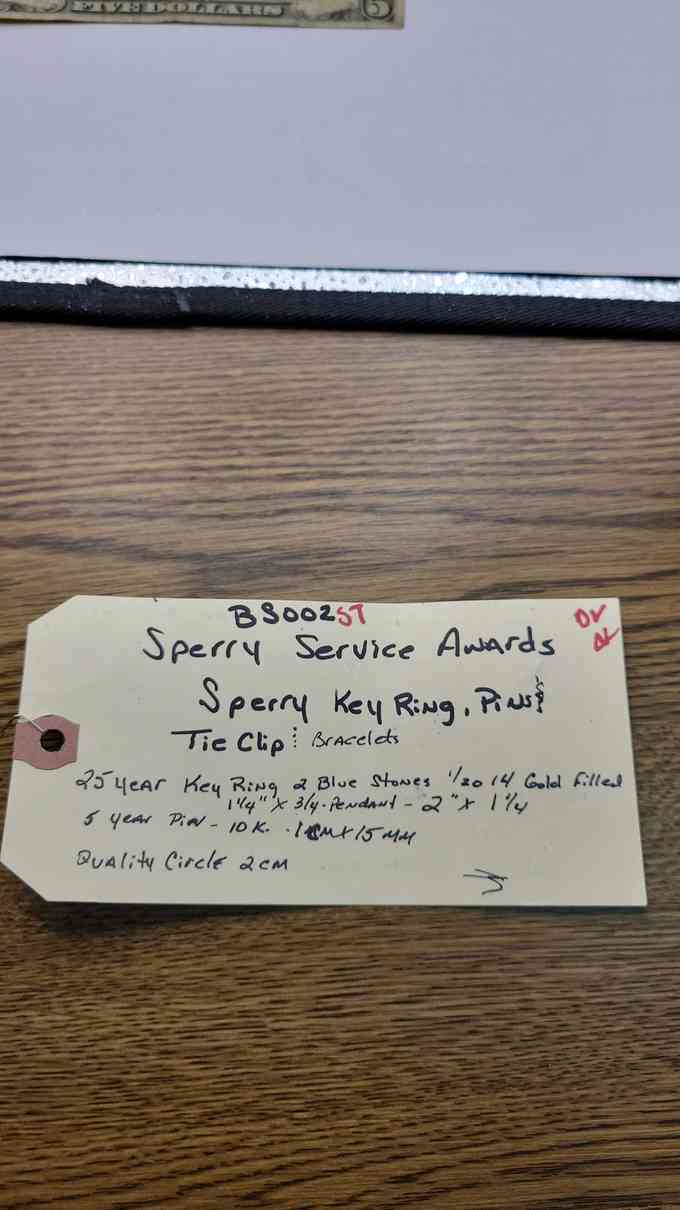 FIVE DOLLARS 5
BS002ST
Sperry Service Awards
Sperry Key Ring, Pins &
Tie Clip & Bracelets
25 year Key Ring 2 Blue Stones 1/20 14 Gold Filled
1 1/4" x 3/4. Pendant - 2" x 1 1/4
5 year Pin - 10 K. .1CM x 15 MM
Quality Circle 2 CM